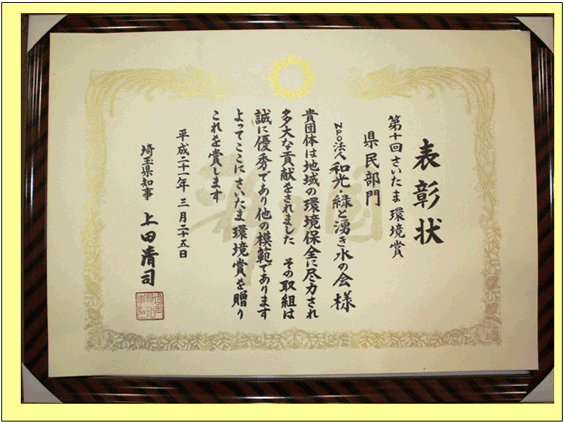 表彰状
第十回さいたま環境賞
県民部門
NPO法人 和光・緑と湧き水の会 様
貴団体は地域の環境保全に尽力され
多大な貢献をされました その取組は
誠に優秀であり他の模範であります
よってここにさいたま環境賞を贈り
これを賞します
平成二十一年 三月二十五日
埼玉県知事 上田清司